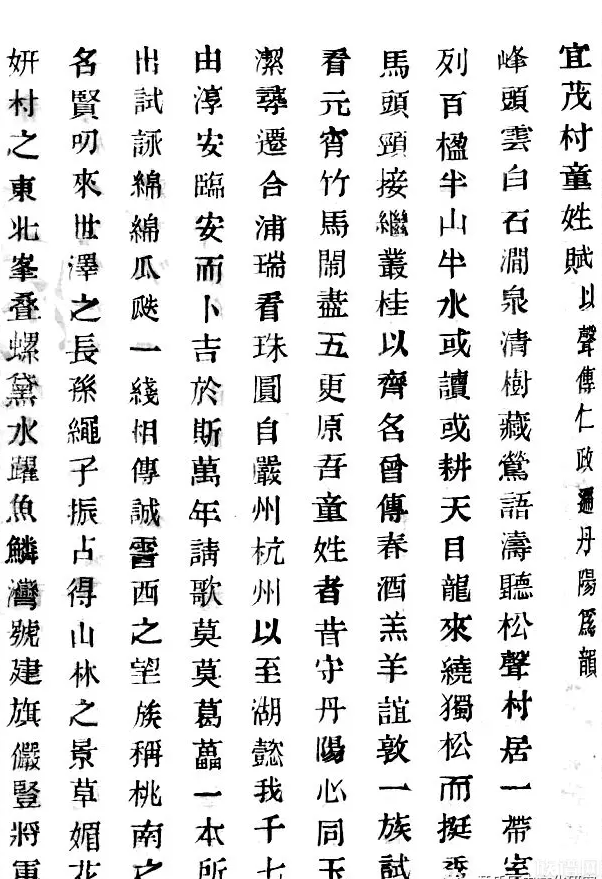 宜茂村童姓賦 以聲傳仁政遍丹陽爲韻
峰頭雲白石澗泉清樹藏鶯語濤聽松聲村居一帶室
列百楹半山半水或讀或耕天目龍來繞獨松而挺秀
馬頭頸接繼叢桂以齊名曾傳春酒羔羊誼敦一族試
看元宵竹馬鬧盡五更原吾童姓者昔守丹陽心同玉
潔尋遷合浦瑞看珠圓自嚴州杭州以至湖懿我千七
由淳安臨安而卜吉於斯萬年請歌莫莫葛藟一本所
出試詠綿綿瓜瓞一綫相傳誠霅西之望族稱桃南之
名賢叨來世澤之長孫繩子振占得山林之景草媚花
妍村之東北峯叠螺黛水躍魚鱗灣號建旗儼豎將軍